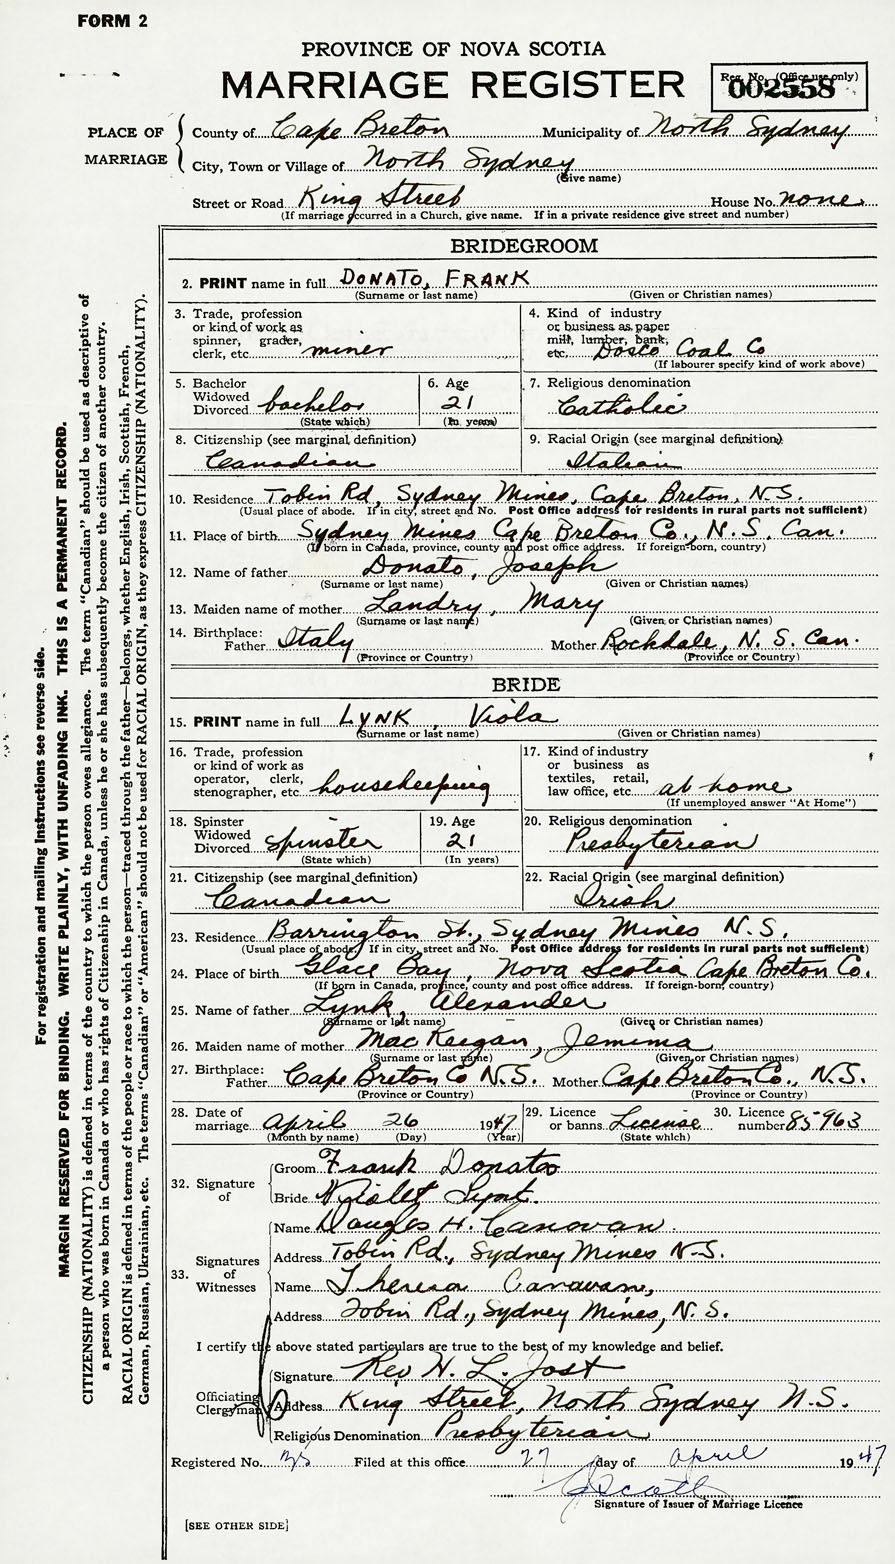 FORM 2
PROVINCE OF NOVA SCOTIA
MARRIAGE REGISTER
Reg. No. (Office use only)
002558
PLACE OF MARRIAGE
County of Cape Breton Municipality of North Sydney
City, Town or Village of North Sydney
(Give name)
Street or Road King Street House No. none
(If marriage occurred in a Church, give name. If in a private residence give street and number)
BRIDEGROOM
2. PRINT name in full DONATO, FRANK
(Surname or last name) (Given or Christian names)
3. Trade, profession
or kind of work as
spinner, grader,
clerk, etc. miner
4. Kind of industry
or business as paper
mill, lumber, bank,
etc. Dosco Coal Co
(If labourer specify kind of work above)
5. Bachelor
Widowed
Divorced bachelor
(State which)
6. Age
21
(In years)
7. Religious denomination
Catholic
8. Citizenship (see marginal definition)
Canadian
9. Racial Origin (see marginal definition)
Italian
10. Residence Tobin Rd, Sydney Mines, Cape Breton, N.S.
(Usual place of abode. If in city, street and No. Post Office address for residents in rural parts not sufficient)
11. Place of birth Sydney Mines Cape Breton Co., N.S. Can.
(If born in Canada, province, county and post office address. If foreign-born, country)
12. Name of father Donato, Joseph
(Surname or last name) (Given or Christian names)
13. Maiden name of mother Landry, Mary
(Surname or last name) (Given or Christian names)
14. Birthplace:
Father Italy Mother Rockdale, N. S. Can.
(Province or Country) (Province or Country)
BRIDE
15. PRINT name in full LYNK, Viola
(Surname or last name) (Given or Christian names)
16. Trade, profession
or kind of work as
operator, clerk,
stenographer, etc. housekeeping
17. Kind of industry
or business as
textiles, retail,
law office, etc. at home
(If unemployed answer "At Home")
18. Spinster
Widowed
Divorced spinster
(State which)
19. Age
21
(In years)
20. Religious denomination
Presbyterian
21. Citizenship (see marginal definition)
Canadian
22. Racial Origin (see marginal definition)
Irish
23. Residence Barrington St., Sydney Mines N.S.
(Usual place of abode. If in city, street and No. Post Office address for residents in rural parts not sufficient)
24. Place of birth Glace Bay, Nova Scotia Cape Breton Co.
(If born in Canada, province, county and post office address. If foreign-born, country)
25. Name of father Lynk, Alexander
(Surname or last name) (Given or Christian names)
26. Maiden name of mother MacKeegan, Jemima
(Surname or last name) (Given or Christian names)
27. Birthplace:
Father Cape Breton Co N.S. Mother Cape Breton Co., N.S.
(Province or Country) (Province or Country)
28. Date of marriage April 26 1947
(Month by name) (Day) (Year)
29. Licence or banns License
(State which)
30. Licence number 85963
32. Signature of
Groom Frank Donato
Bride Violet Lynk
33. Signatures of Witnesses
Name Douglas H. Canovan
Address Tobin Rd., Sydney Mines N.S.
Name Theresa Canavan,
Address Tobin Rd., Sydney Mines, N.S.
I certify the above stated particulars are true to the best of my knowledge and belief.
Officiating Clergyman
Signature Rev H. L. Jost
Address King Street, North Sydney N.S.
Religious Denomination Presbyterian
Registered No. Filed at this office 27 day of April 1947
Scott
Signature of Issuer of Marriage Licence
[SEE OTHER SIDE]
For registration and mailing instructions see reverse side.
MARGIN RESERVED FOR BINDING. WRITE PLAINLY, WITH UNFADING INK. THIS IS A PERMANENT RECORD.
CITIZENSHIP (NATIONALITY) is defined in terms of the country to which the person owes allegiance. The term "Canadian" should be used as descriptive of
a person who was born in Canada or who has rights of Citizenship in Canada, unless he or she has subsequently become the citizen of another country.
RACIAL ORIGIN is defined in terms of the people or race to which the person—traced through the father—belongs, whether English, Irish, Scottish, French,
German, Russian, Ukrainian, etc. The terms "Canadian" or "American" should not be used for RACIAL ORIGIN, as they express CITIZENSHIP (NATIONALITY).